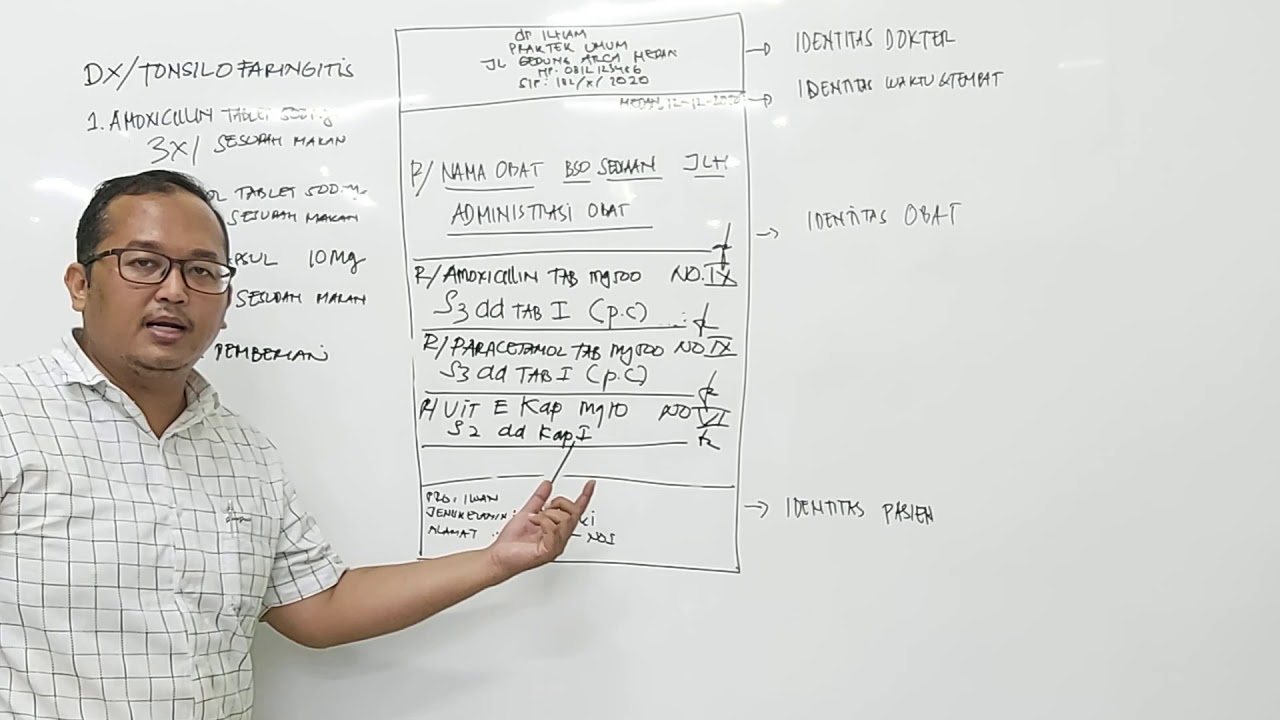 DX/TONSILOFARINGITIS
1. AMOXICILLIN TABLET 500 Mg
3X1 SESUDAH MAKAN
OL TABLET 500 Mg
SESUDAH MAKAN
PSUL 10 Mg
SESUDAH MAKAN
PEMBERIAN
dr ILHAM
PRAKTEK UMUM
JL GEDUNG ARCA MEDAN
SIP: 182/X/2020
MEDAN, 12-12-2020
R/ NAMA OBAT BSO SEDIAAN JLH
ADMINISTRASI OBAT
R/ AMOXICILLIN TAB mg 500 NO. IX
S3 dd TAB I (p.c)
R/ PARACETAMOL TAB mg 500 NO IX
S3 dd TAB I (p.c)
R/ Vit E Kap mg 10 NO VI
S2 dd Kap I
PRO: IWAN
JENIS KELAMIN ki
ALAMAT
IDENTITAS DOKTER
IDENTITAS WAKTU & TEMPAT
IDENTITAS OBAT
IDENTITAS PASIEN